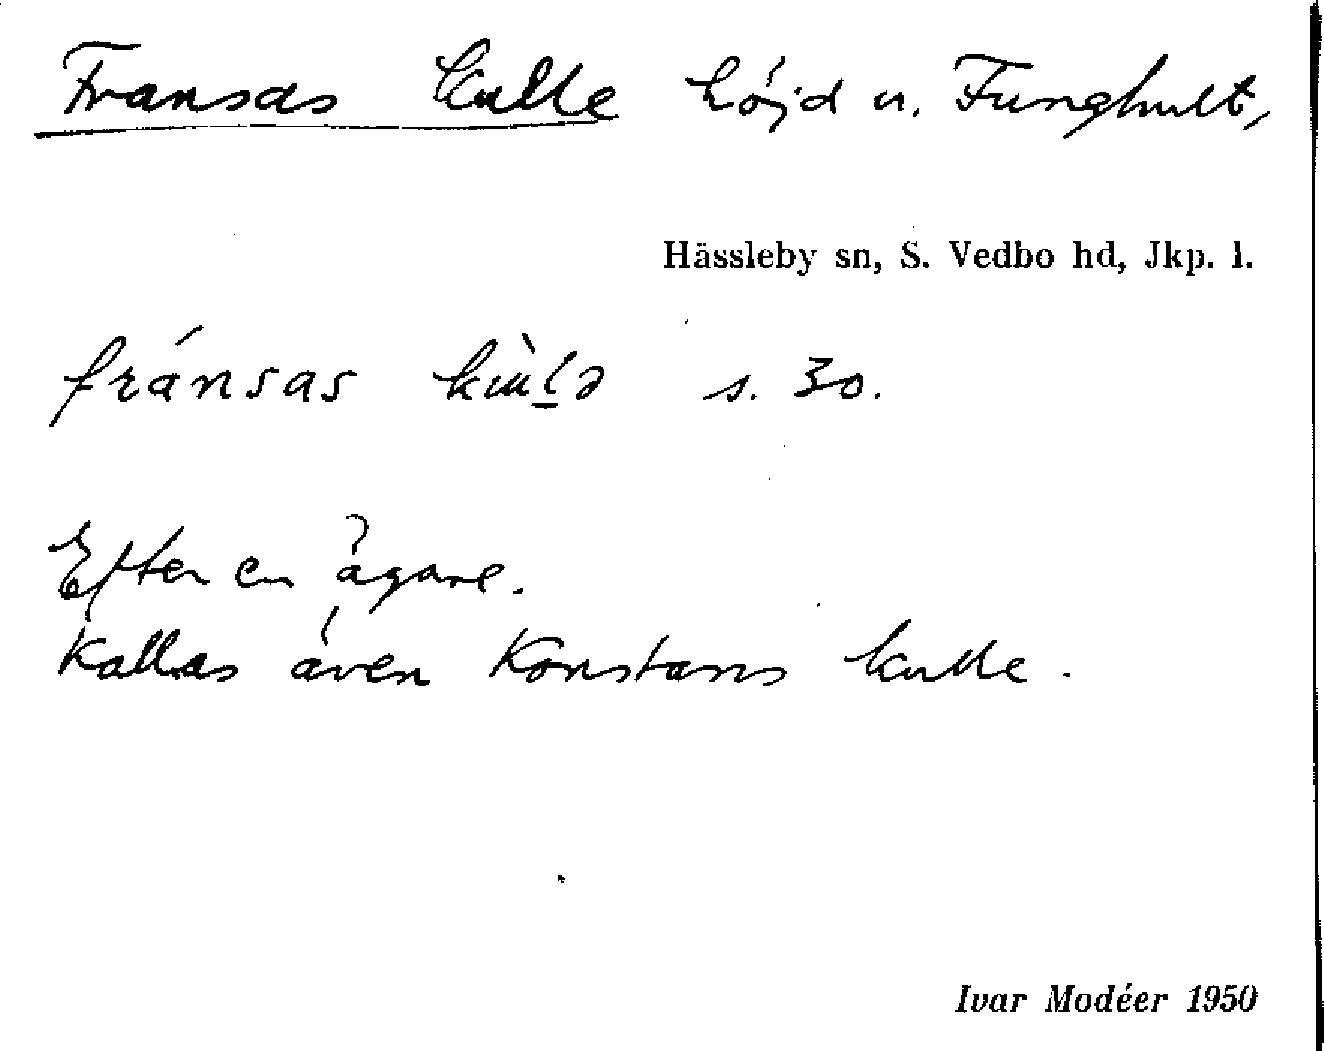 Fransas kulle höjd u. Funghult,
Hässleby sn, S. Vedbo hd, Jkp. l.
fránsas s. 30.
Efter en ägare.
Kallas även Konstans kulle.
Ivar Modéer 1950